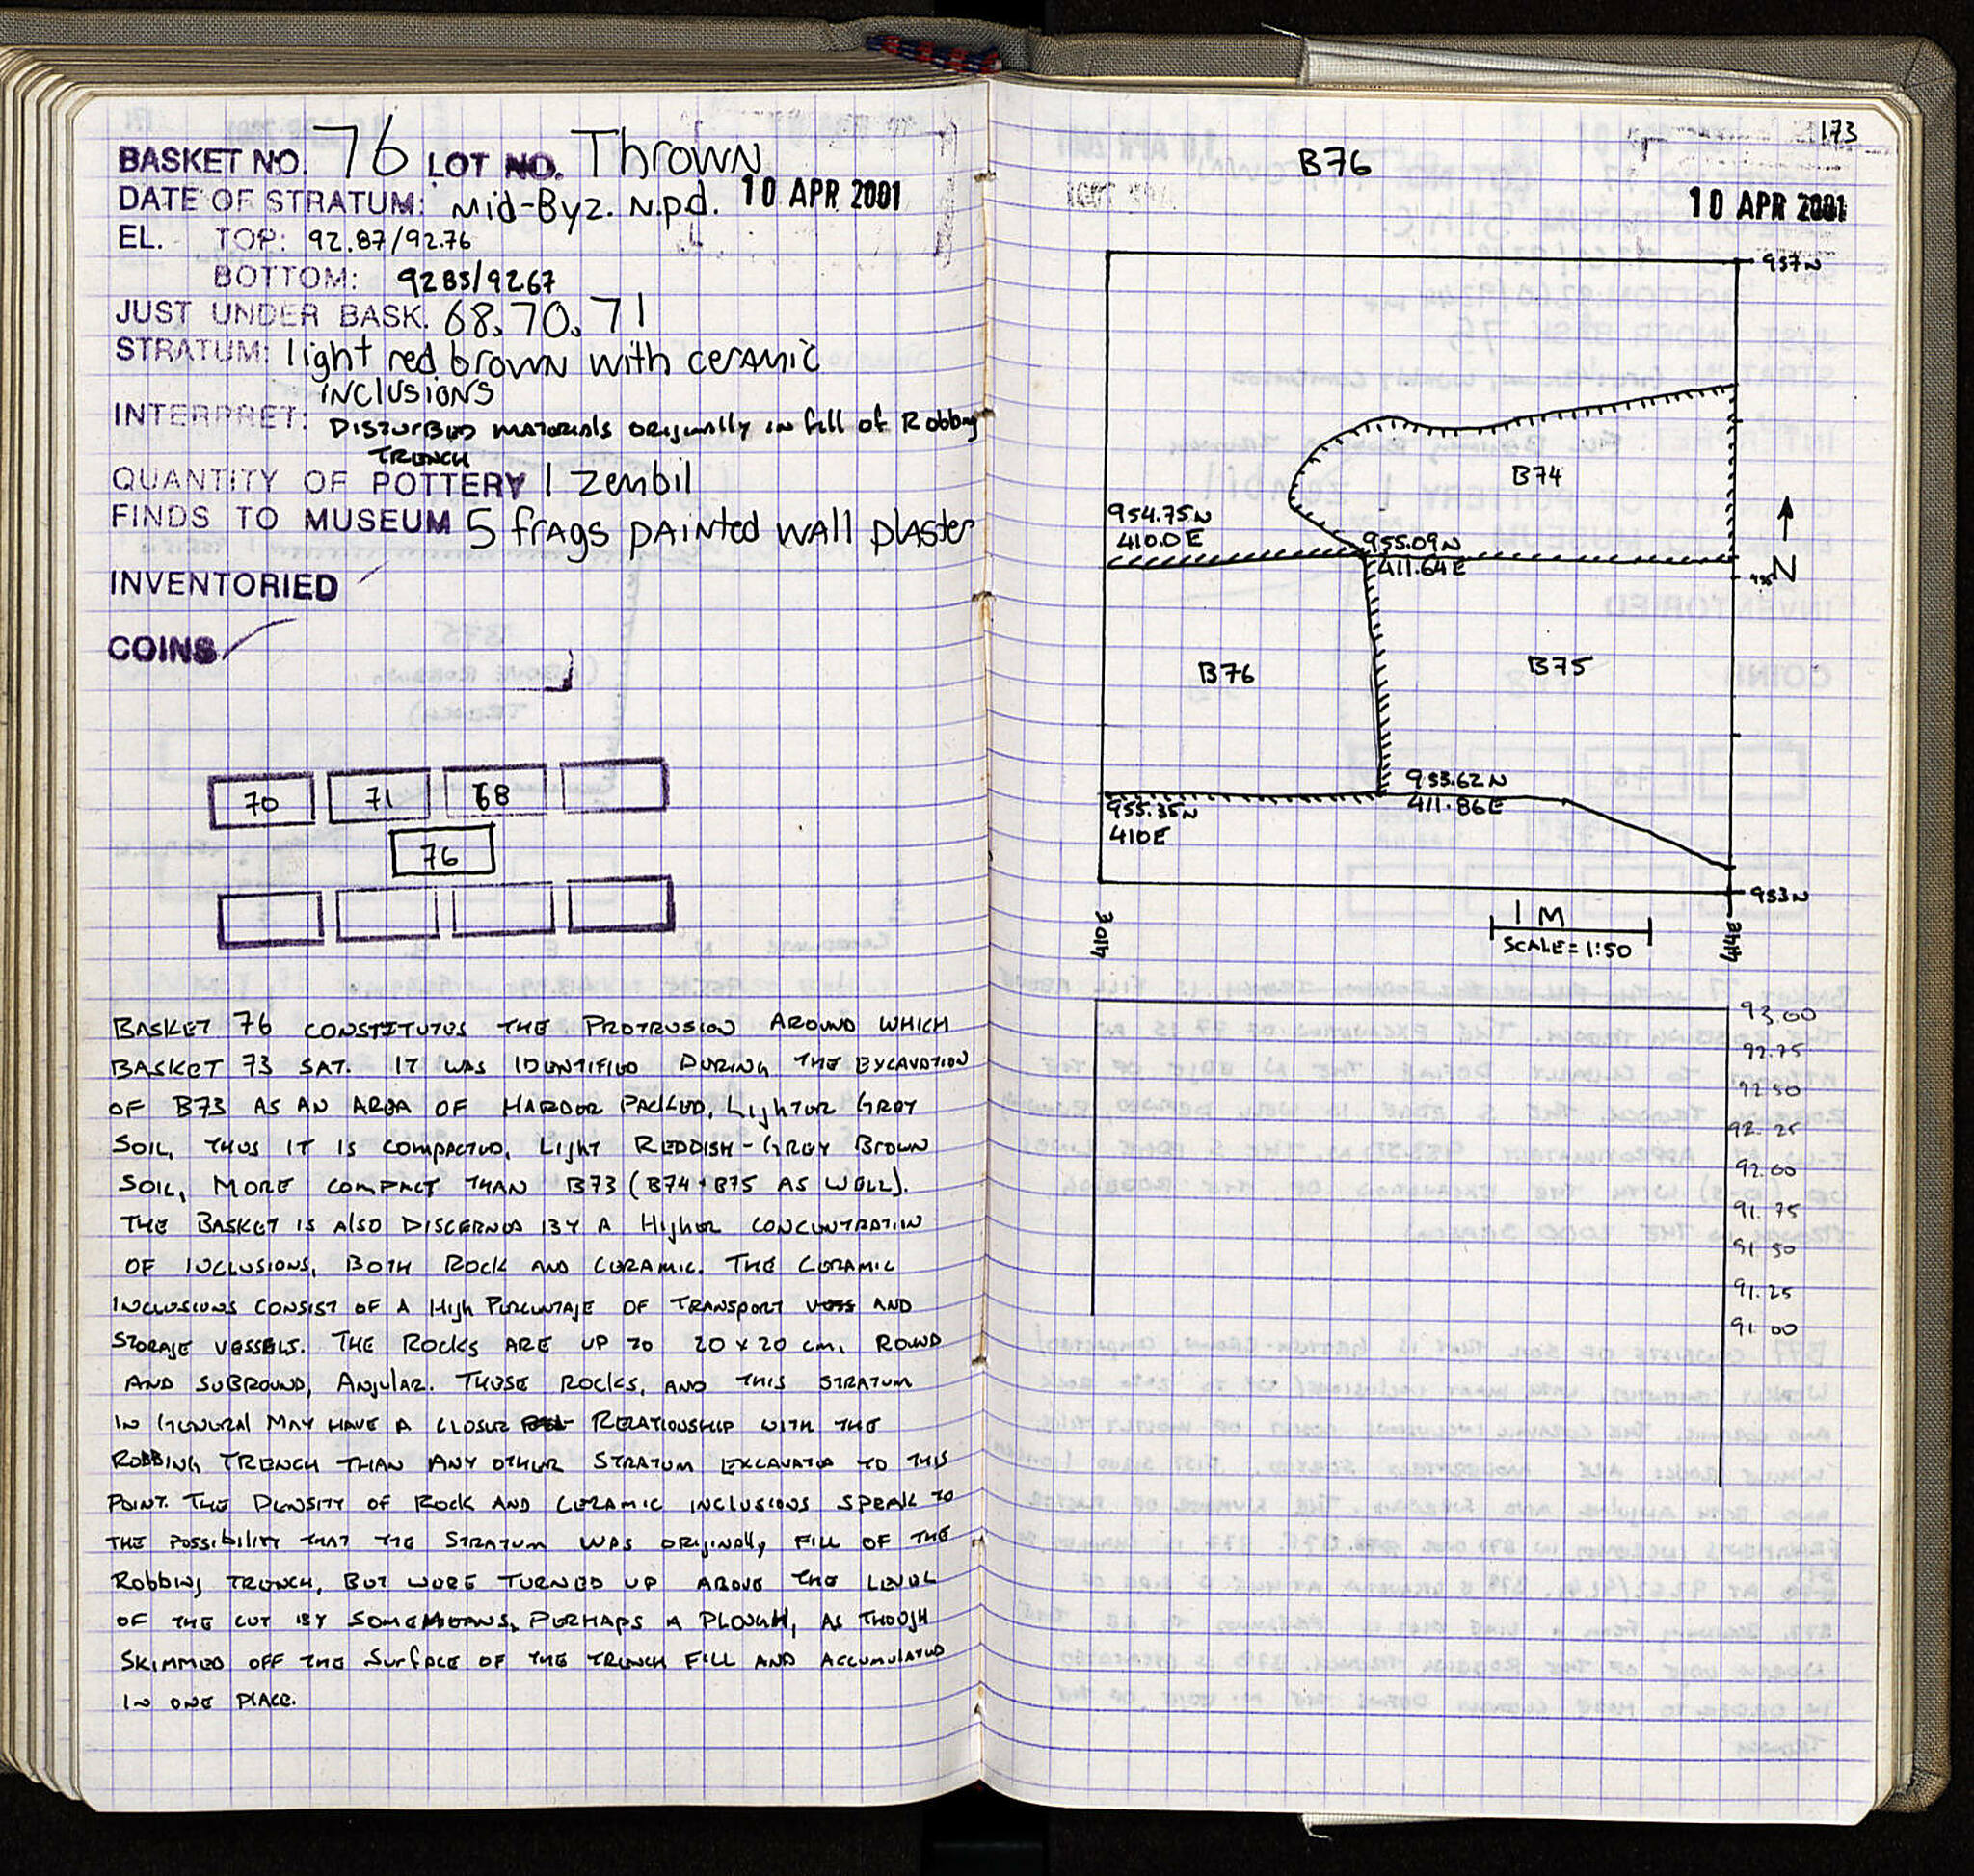 BASKET NO. 76 LOT NO. Thrown
DATE OF STRATUM: Mid-Byz. N.p.d. 10 APR 2001
EL. TOP: 92.87/92.76
BOTTOM: 9285/9267
JUST UNDER BASK. 68, 70, 71
STRATUM: light red brown with ceramic
inclusions
INTERPRET: Disturbed materials originally in fill of Robbing
Trench
QUANTITY OF POTTERY 1 zembil
FINDS TO MUSEUM 5 frags painted wall plaster
INVENTORIED
COINS
70 71 68
76
BASKET 76 CONSTITUTES THE PROTRUSION AROUND WHICH
BASKET 73 SAT. IT WAS IDENTIFIED DURING THE EXCAVATION
OF B73 AS AN AREA OF HARDER PACKED, LIGHTER GREY
SOIL, THUS IT IS COMPACTED, LIGHT REDDISH-GREY BROWN
SOIL, MORE COMPACT THAN B73 (B74+B75 AS WELL).
THE BASKET IS ALSO DISCERNED BY A HIGHER CONCENTRATION
OF INCLUSIONS, BOTH ROCK AND CERAMIC. THE CERAMIC
INCLUSIONS CONSIST OF A HIGH PERCENTAGE OF TRANSPORT AND
STORAGE VESSELS. THE ROCKS ARE UP TO 20 x 20 cm, ROUND
AND SUBROUND, ANGULAR. THESE ROCKS, AND THIS STRATUM
IN GENERAL MAY HAVE A CLOSER RELATIONSHIP WITH THE
ROBBING TRENCH THAN ANY OTHER STRATUM EXCAVATED TO THIS
POINT. THE DENSITY OF ROCK AND CERAMIC INCLUSIONS SPEAK TO
THE POSSIBILITY THAT THE STRATUM WAS ORIGINALLY FILL OF THE
ROBBING TRENCH, BUT WERE TURNED UP ABOVE THE LEVEL
OF THE CUT BY SOME MEANS, PERHAPS A PLOUGH, AS THOUGH
SKIMMED OFF THE SURFACE OF THE TRENCH FILL AND ACCUMULATED
IN ONE PLACE.
173
B76
10 APR 2001
957N
B74
954.75N
410.0E
955.09N
411.64E
N
B76
B75
953.62N
411.86E
955.35N
410E
953N
410E
414E
1 M
SCALE = 1:50
93.00
92.75
92.50
92.25
92.00
91.75
91.50
91.25
91.00